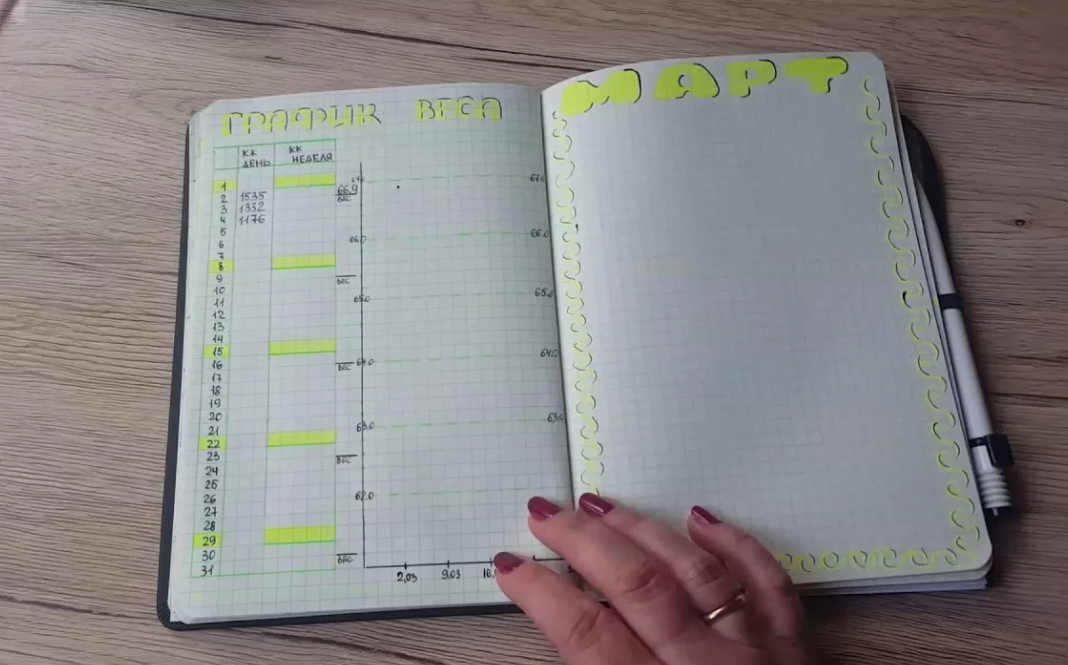 ГРАФИК ВЕСА
КК ДЕНЬ
КК НЕДЕЛЯ
1
2 1535
3 1332
4 1176
5
6
7
8
9
10
11
12
13
14
15
16
17
18
19
20
21
22
23
24
25
26
27
28
29
30
31
66.9
ВЕС
ВЕС
ВЕС
ВЕС
ВЕС
66.0
65.0
64.0
63.0
62.0
66.0
65.0
64.0
63.0
2,03 9,03 16
МАРТ